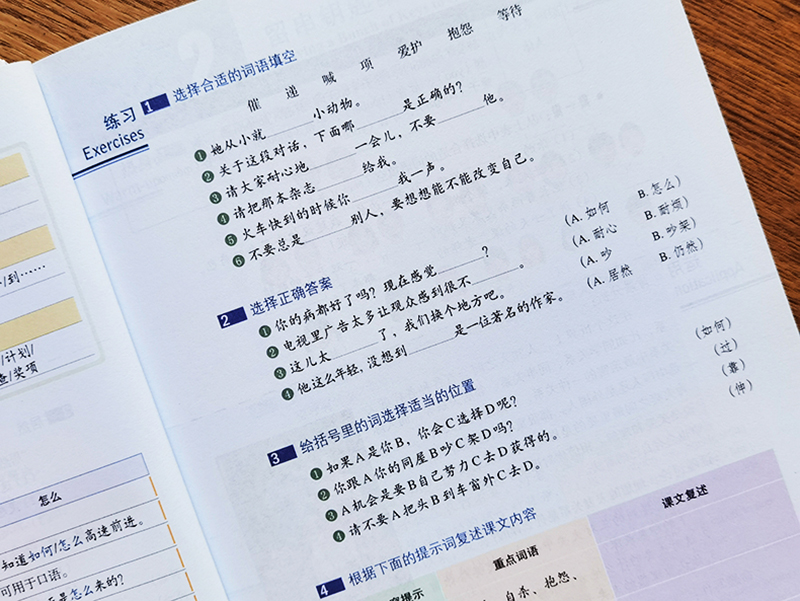 练习
Exercises
1 选择合适的词语填空
催 递 喊 项 爱护 抱怨 等待
❶ 她从小就______小动物。
❷ 关于这段对话，下面哪______是正确的？
❸ 请大家耐心地______一会儿，不要______他。
❹ 请把那本杂志______给我。
❺ 火车快到的时候你______我一声。
❻ 不要总是______别人，要想想能不能改变自己。
2 选择正确答案
❶ 你的病都好了吗？现在感觉______？ (A. 如何 B. 怎么)
❷ 电视里广告太多让观众感到很不______。 (A. 耐心 B. 耐烦)
❸ 这儿太______了，我们换个地方吧。 (A. 吵 B. 吵架)
❹ 他这么年轻，没想到______是一位著名的作家。 (A. 居然 B. 仍然)
3 给括号里的词选择适当的位置
❶ 如果A是你B，你会C选择D呢？ (如何)
❷ 你跟A你的同屋B吵C架D吗？ (过)
❸ A机会是要B自己努力C去D获得的。 (靠)
❹ 请不要A把头B到车窗外C去D。 (伸)
4 根据下面的提示词复述课文内容
重点词语 课文复述
自杀、抱怨、
/到……
/计划/
/奖项
怎么
知道如何/怎么高速前进。
可用于口语。
怎么来的？